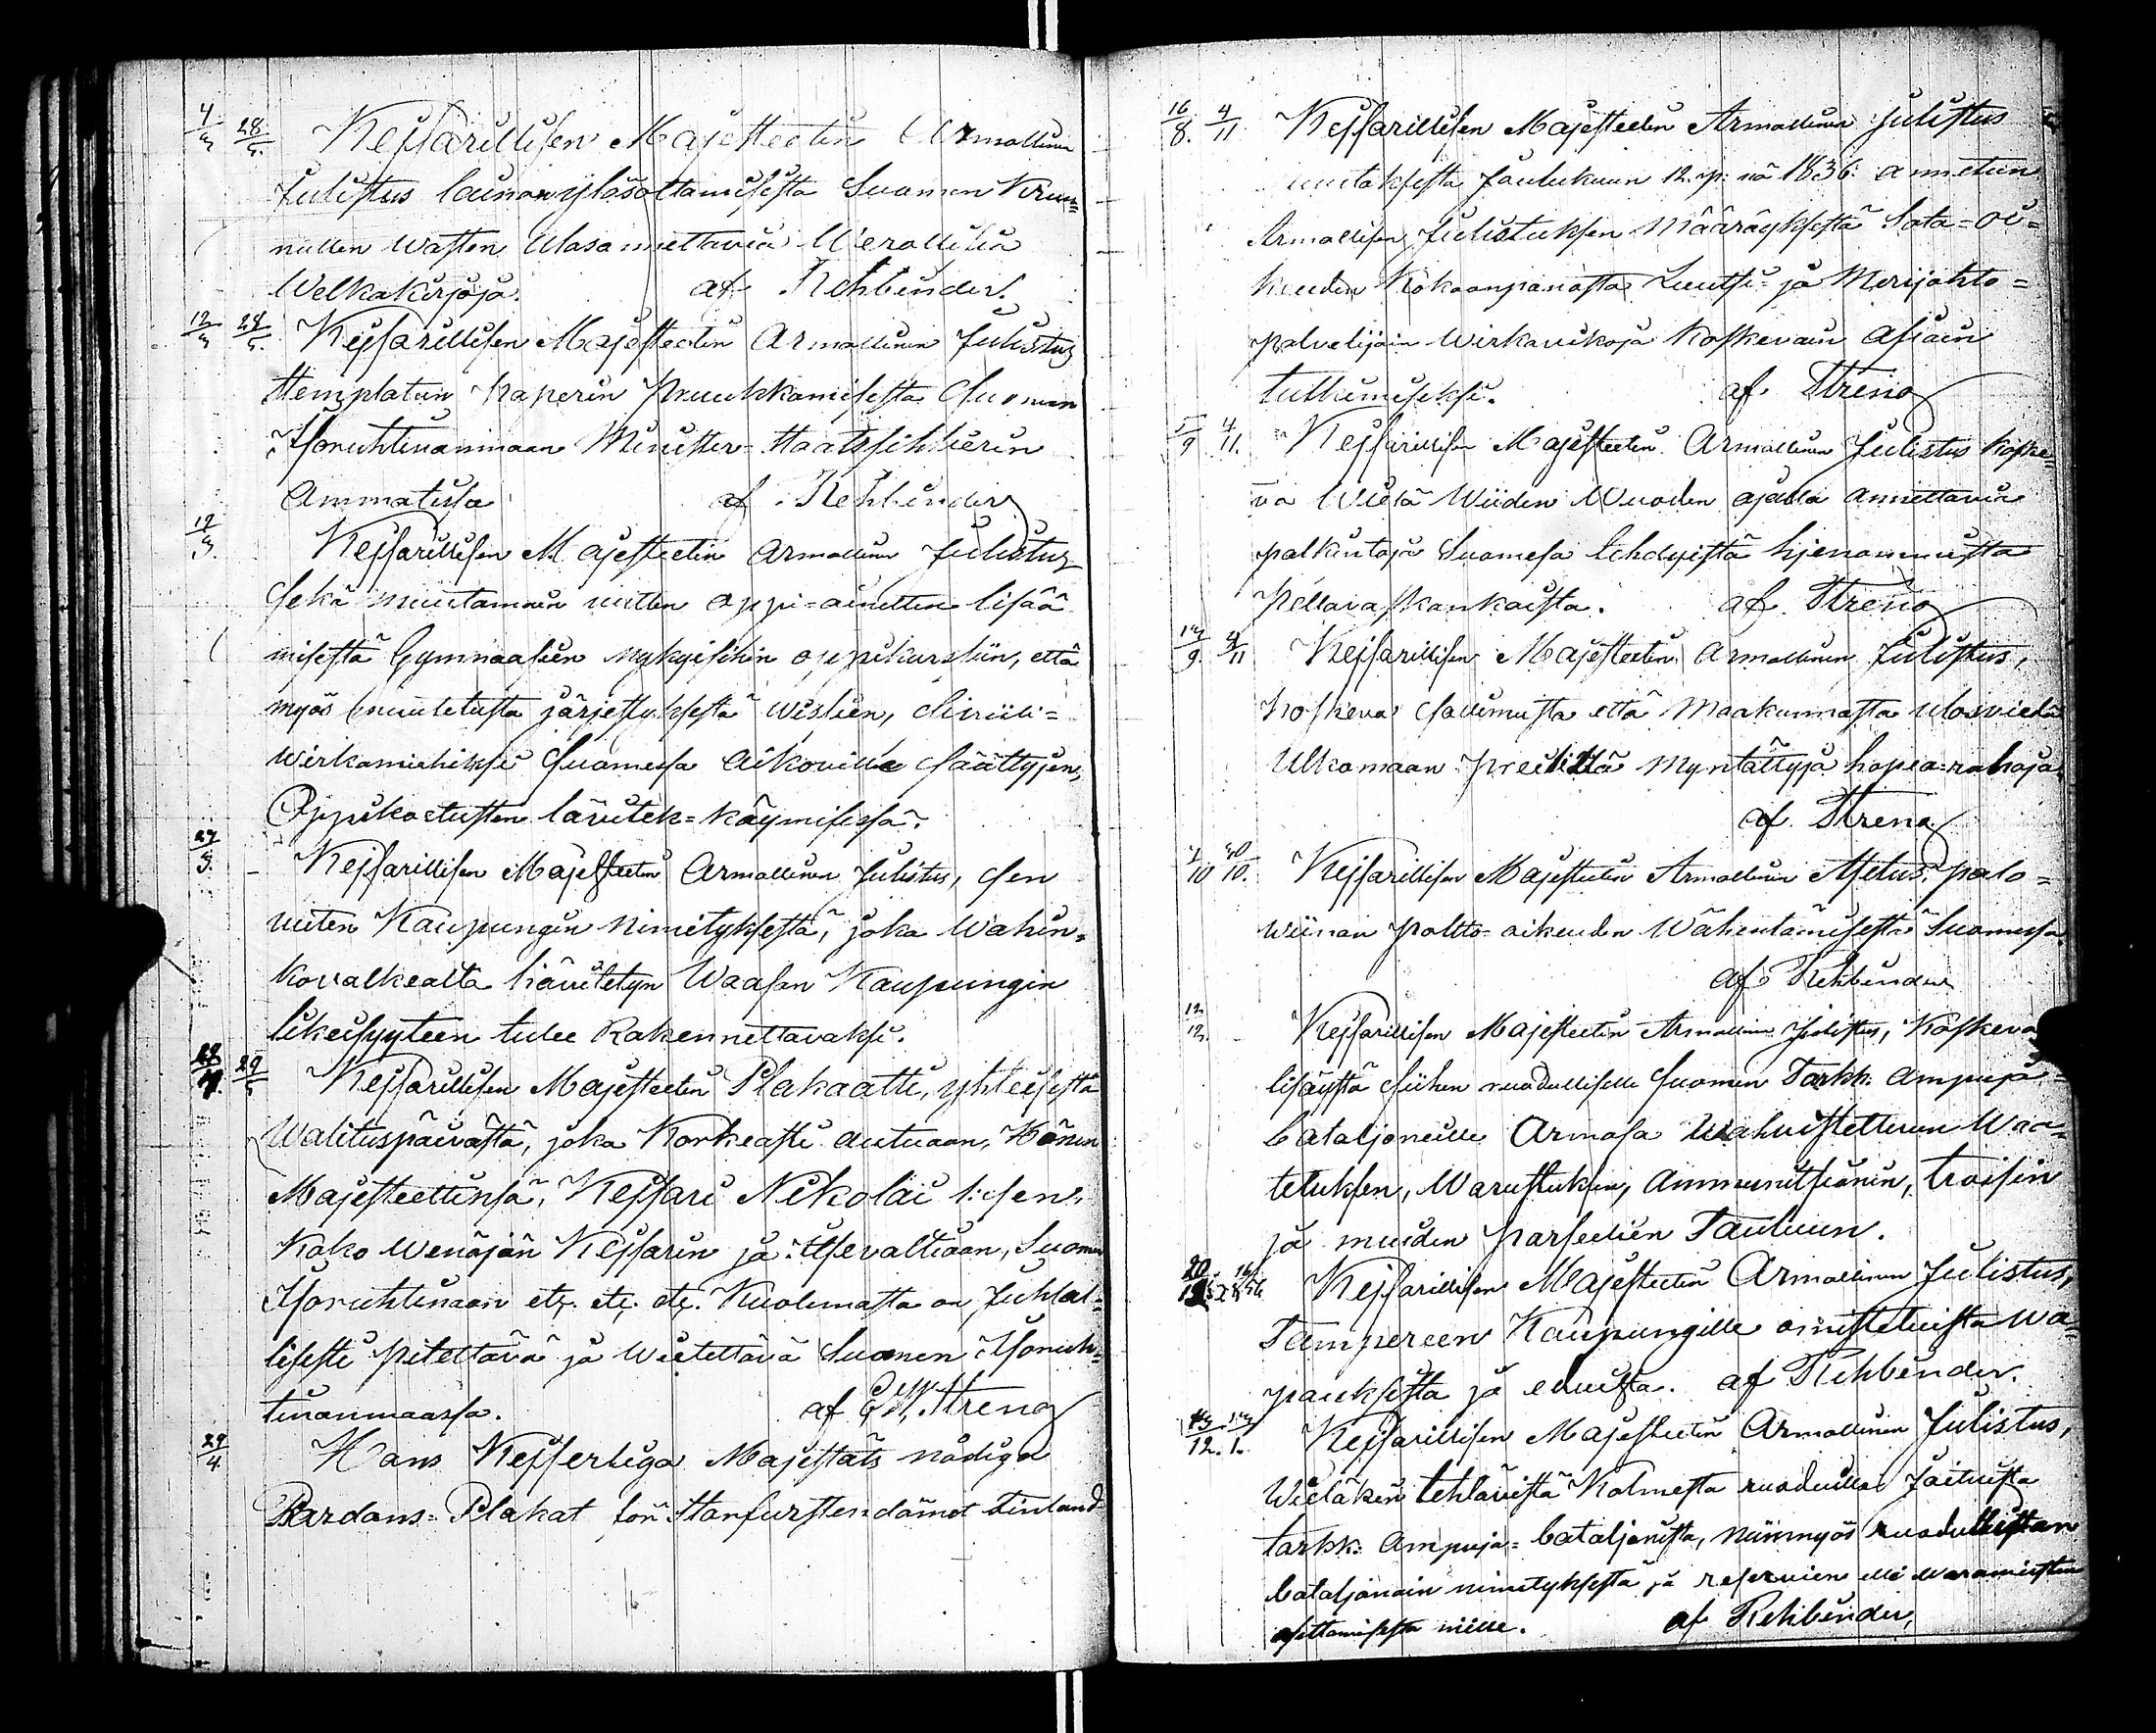 4/3 28/5. Kejsarillisen Majesteetin Armollinen
Julistus lainan ylösottamisesta Suomen Kruu=
nullen wasten Ulosannettavia Werollisia
Welkakirjoja. af Rehbinder.
12/3 28/5. Kejsarillisen Majesteetin Armollinen Julistus
stemplatun paperin pruukkamisesta Suomen
Isoruhtinanmaan Minister=staatssihtierin
Ammatissa af Rehbinder
19/3. Kejsarillisen Majesteetin armollinen Julistus
sekä muutamain uutten oppi=ainetten lisää
misestä Gymnaasien nykyisihin oppikurssiin, että
myös muutetusta järjestyksestä wissien, Siviili=
wirkamiehiksi Suomessa Aikoville säättyjen,
Oppikoetusten lävitek=käymisessä.
27/3. Kejsarillisen Majesteetin Armollinen Julistus, sen
uuten Kaupungin nimityksestä, joka Wahin=
kovalkealta hävitetyn Waasan Kaupungin
likeisyyteen tulee Rakennettavaksi.
28/4. 29/5 Kejsarillisen Majesteetin Plakaatti, yhteisestä
Walituspäivästä, joka Korkeasti autuaan, Hänen
Majesteettinsä, Kejsari Nikolai 1:sen,
Koko Wenäjän Kejsarin ja Itsevaltiaan, Suomen
Isoruhtinaan etc. etc. etc. Kuolemasta on Juhlal=
lisesti pitettävä ja Wietettävä Suomen Isoruh=
tinanmaassa. af E.W. Streng
29/4 Hans Kejserliga Majestäts nådiga
Pardons=Plakat för Storfurstendömet Finland
16/8. 4/11 Kejsarillisen Majesteetin Armollinen Julistus
muutoksesta Joulukuun 12. p: nä 1836: annetun
Armollisen Julistuksen määräyksestä Sota=oi=
keuden Kokoonpanosta Luutsi= ja Merijohto=
palvelijain Wirkavikoja Koskevain asiain
tutkimiseksi. af Streng
5/9 4/11. Kejsarillisen Majesteetin Armollinen Julistus koske=
va Wielä Wiiden Wuoden ajalla annettavia
palkintoja Suomesa tehdyistä hienommista
pellavaskankaista. af. Streng
13/9. 4/11 Kejsarillisen Majesteetin Armollinen Julistus,
koskeva sallimusta että Maakunnasta ulosviedä
Ulkomaan preillä myntättyjä hopea=rahoja.
af. Streng
7/10 30/10. Kejsarillisen Majesteetin Armollinen Asetus, palo=
wiinan poltto=oikeuden Wähentämisestä Suomessa
af Rehbinder
12/12. Kejsarillisen Majesteetin Armollinen Julistus, Koskeva
lisäystä siihen ruodulliselle Suomen Tarkk. ampuja=
bataljoneille Armosa Wahvistettuun Waa=
tetuksen, Warustuksen, ammunitsionin, troisin
ja muiden parseelien Tauluun.
20/12 16/1 56 Kejsarillisen Majesteetin Armollinen Julistus,
Tampereen Kaupungille omistetuista wa=
pauksista ja eduista. af Rehbinder.
13/12. 13/1. Kejsarillisen Majesteetin Armollinen Julistus,
Wieläkin tehtävistä Kolmesta ruoduilla Jaetuista
tarkk: ampuja=bataljonista, niinmyös ruodullisten
bataljonain nimityksestä ja reservien eli waramiesten
asettamisesta niille. af Rehbinder,